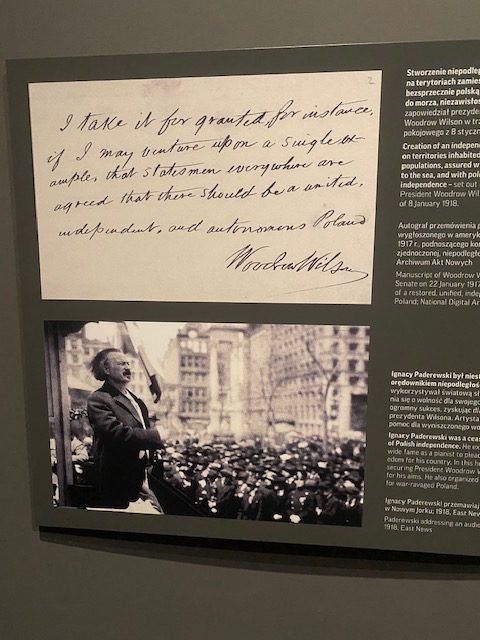 2
I take it for granted, for instance,
if I may venture upon a single ex-
ample, that statesmen everywhere are
agreed that there should be a united,
independent, and autonomous Poland
Woodrow Wilson
Stworzenie niepodleg
na terytoriach zamies
bezsprzecznie polską
do morza, niezawisłoś
zapowiedział prezyde
Woodrow Wilson w trz
pokojowego z 8 styczn
Creation of an indepen
on territories inhabited
populations, assured w
to the sea, and with poli
independence – set out
President Woodrow Wil
of 8 January 1918.
Autograf przemówienia p
wygłoszonego w ameryk
1917 r., podnoszącego kon
zjednoczonej, niepodległe
Archiwum Akt Nowych
Manuscript of Woodrow W
Senate on 22 January 1917
of a restored, unified, inde
Poland; National Digital Ar
Ignacy Paderewski był niest
orędownikiem niepodległoś
wykorzystywał światową sł
nia się o wolność dla swojego
ogromny sukces, zyskując dl
prezydenta Wilsona. Artysta
pomoc dla wyniszczonego wo
Ignacy Paderewski was a ceas
of Polish independence. He ex
wide fame as a pianist to plead
edom for his country. In this he
securing President Woodrow W
for his aims. He also organized
for war-ravaged Poland.
Ignacy Paderewski przemawiaj
w Nowym Jorku; 1918, East New
Paderewski addressing an audie
1918, East News